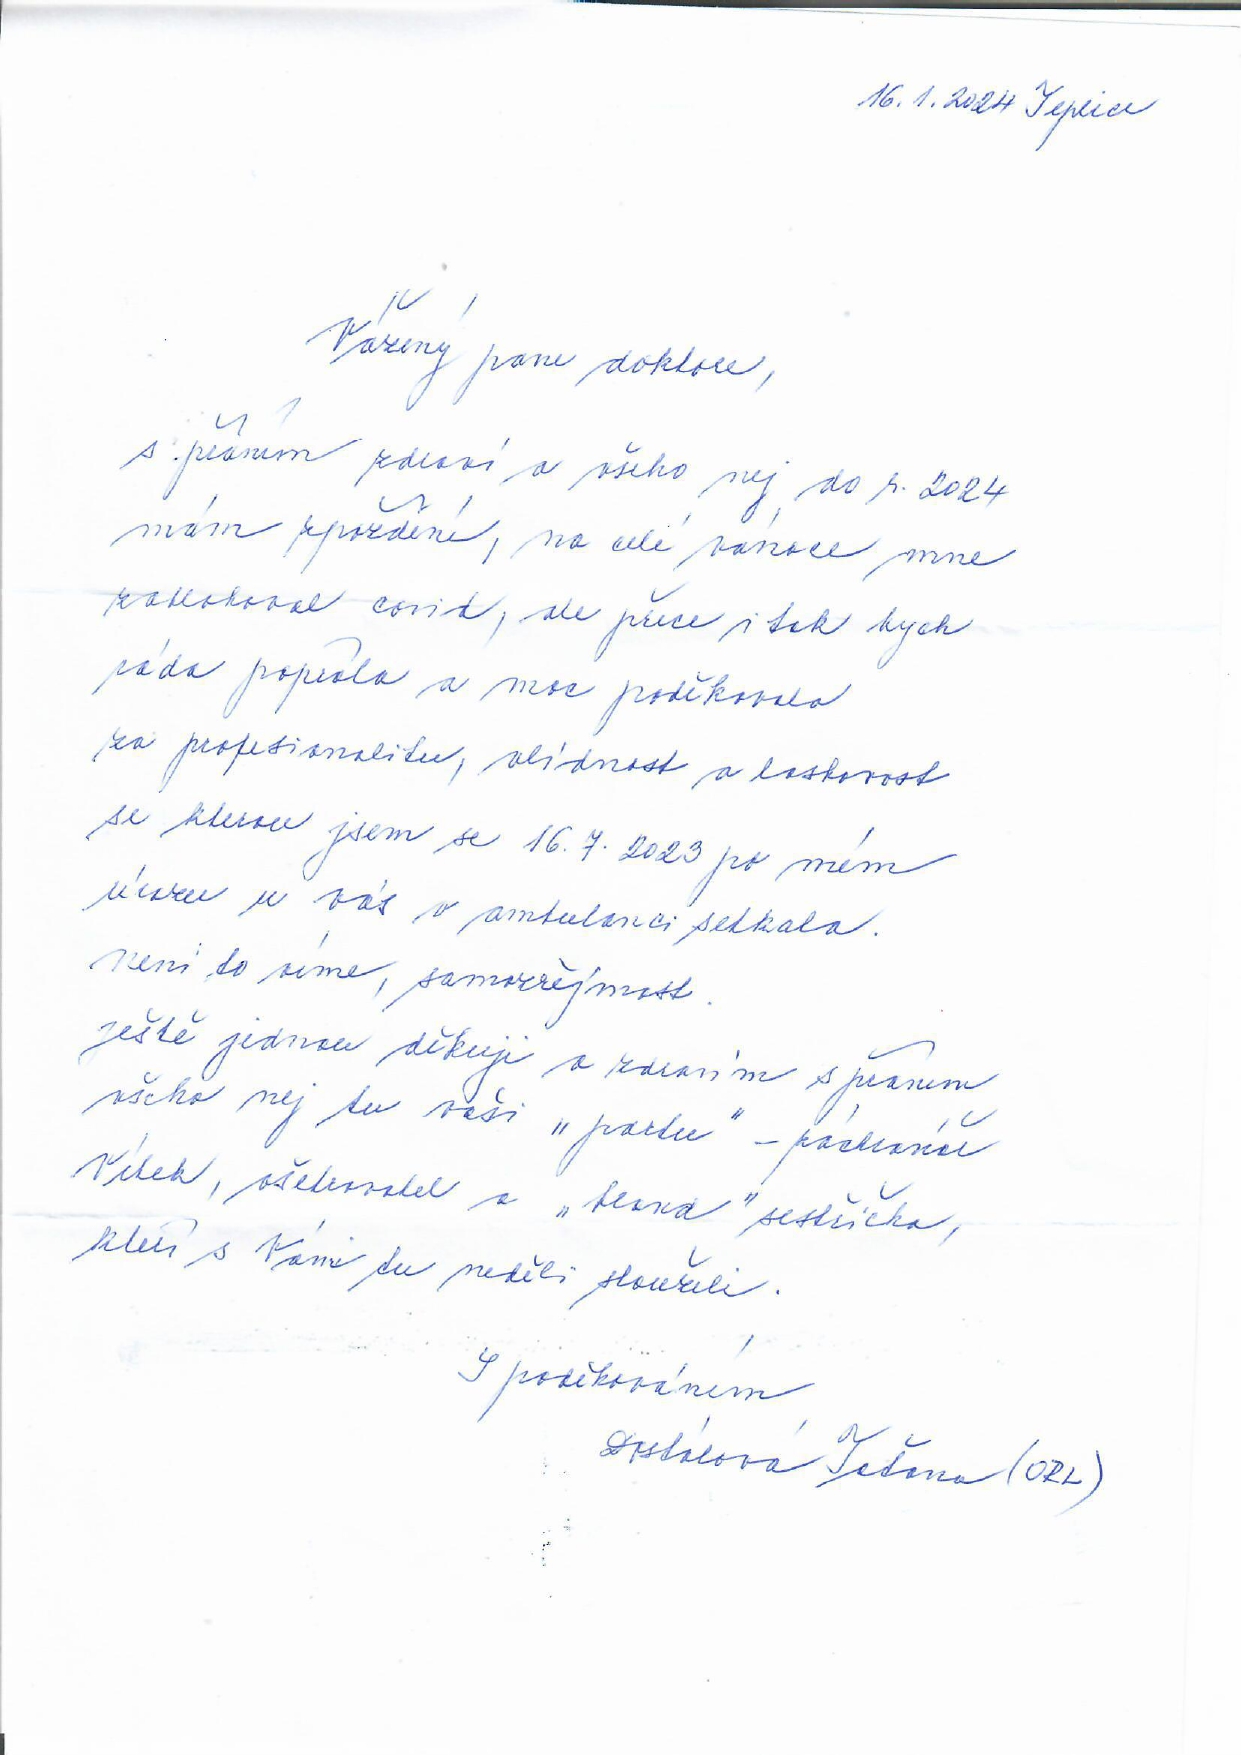 16. 1. 2024 Teplice
Vážený pane doktore,
s přáním zdraví a všeho nej do r. 2024
mám zpoždění, na celé vánoce mne
zablokoval covid, ale přece i tak bych
ráda popřála a moc poděkovala
za profesionalitu, vlídnost a laskavost
se kterou jsem se 16. 7. 2023 po mém
úrazu u vás v ambulanci setkala.
Není to víme, samozřejmost.
Ještě jednou děkuji a zdravím s přáním
všeho nej tu vaši „partu" – záchranář
Vítek, ošetřovatel a „blond" sestřička,
kteří s Vámi tu neděli sloužili.
S poděkováním
Dostálová Taťana (ORL)